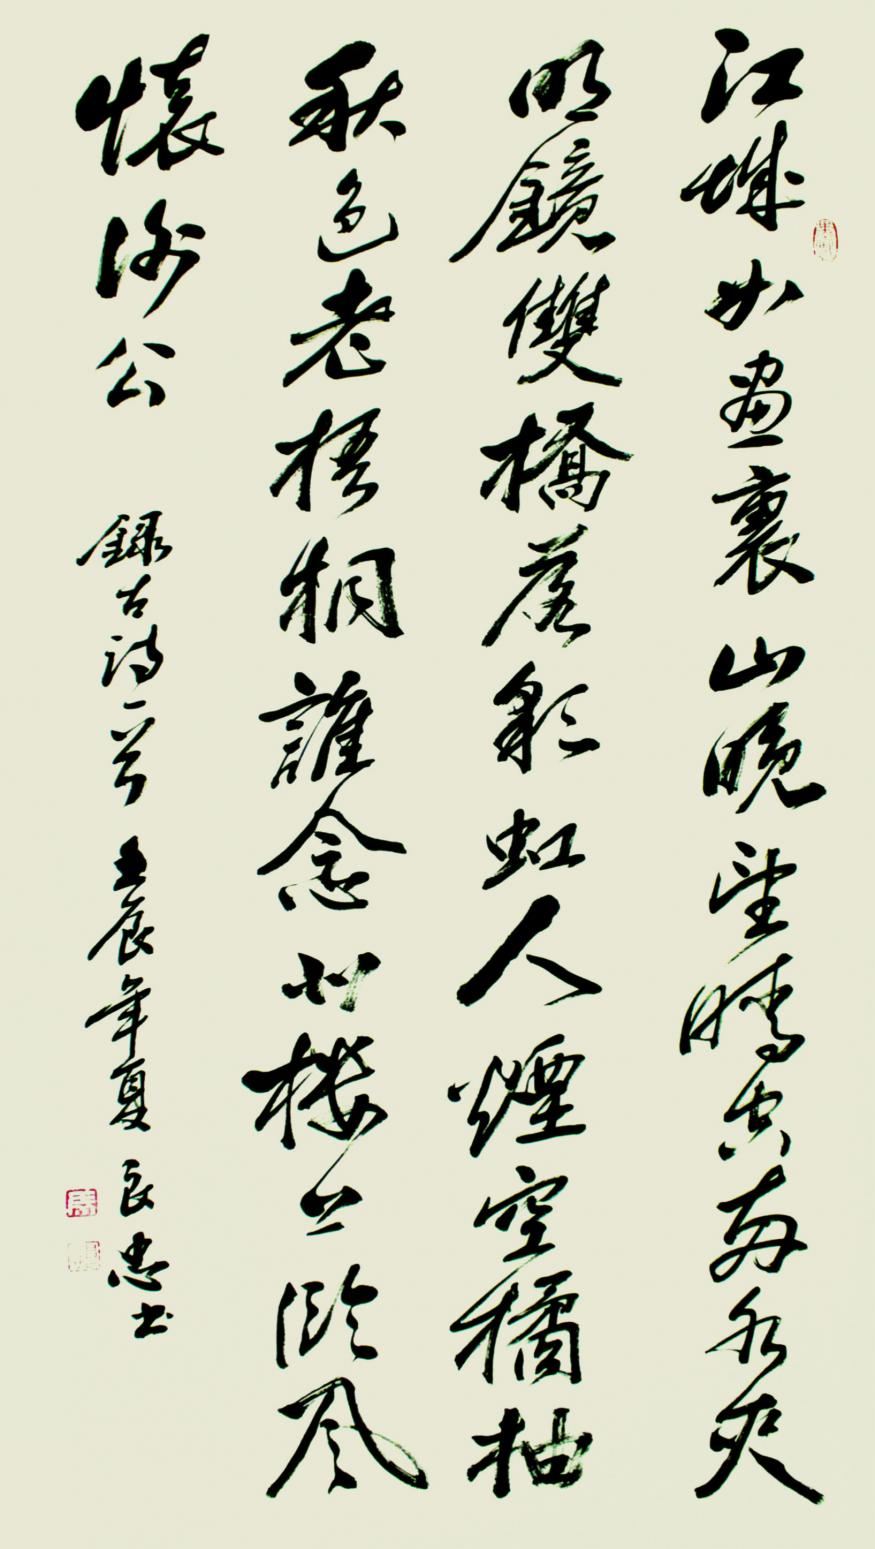 江城如畫裏山晚望晴空兩水夾
明鏡雙橋落彩虹人煙空橘柚
秋色老梧桐誰念北樓上臨風
懷謝公 錄古詩一首 壬辰年夏 良忠书